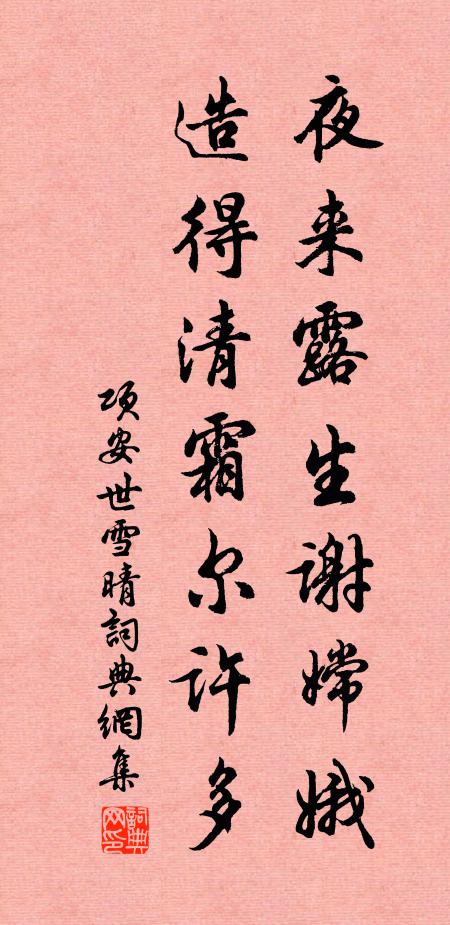 夜来露生谢嫦娥
造得清霜尔许多
项安世雪晴詞典網集
詞典网印